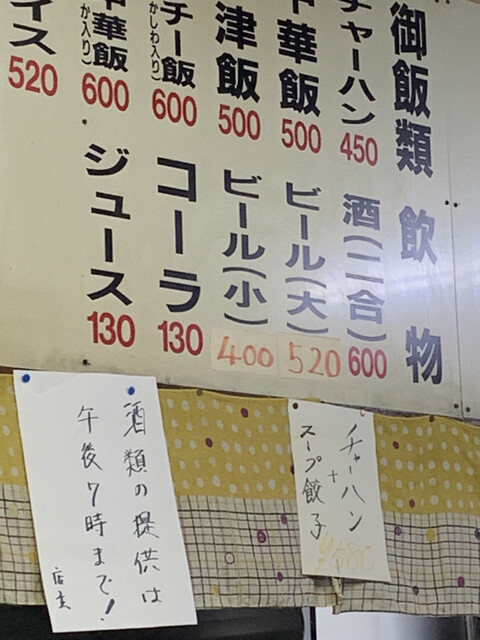 御飯類
チャーハン 450
中華飯 500
津飯 500
チー飯(かしわ入り) 600
中華飯
か入り) 600
イス 520
飲物
酒(二合) 600
ビール(大) 520
ビール(小) 400
コーラ 130
ジュース 130
チャーハン
+
スープ餃子
¥580
酒類の提供は
午後7時まで!
店主